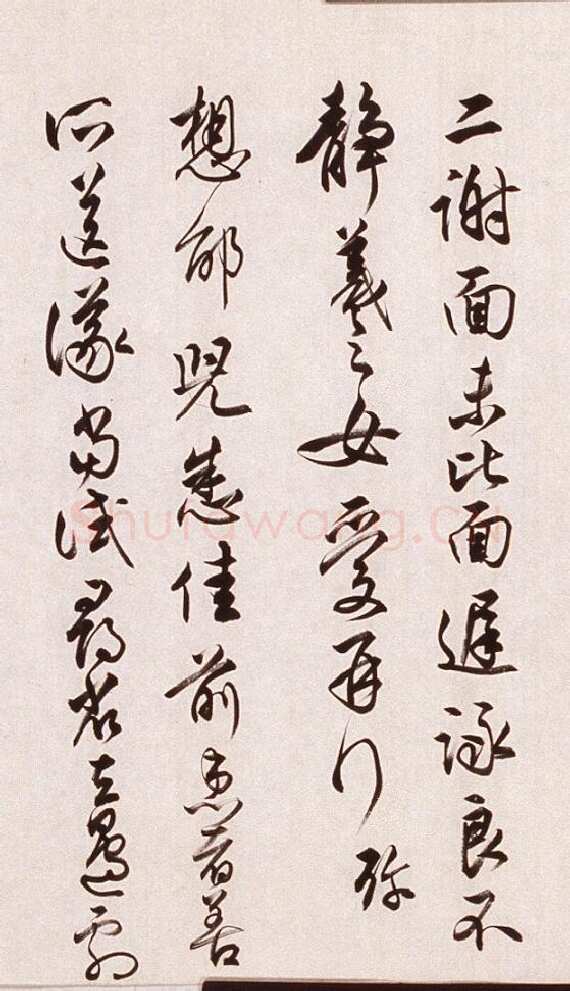 二謝面未比面遲詠良不
靜羲之女愛再拜
想邰兒悉佳前患者善
所送議當試尋省左邊劇
Shufawang.CN